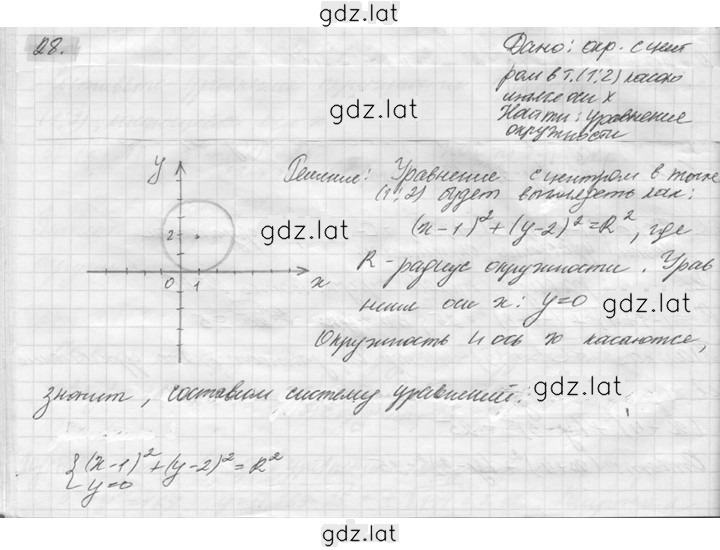 gdz.lat
28.
Дано: окр. с цент
ром в т. (1;2) касаю
щаяся оси x
Найти: уравнение
окружности
gdz.lat
y
Решение: Уравнение с центром в точке
(1;2) будет выглядеть как:
(x-1)²+(y-2)²=R², где
2
gdz.lat
R - радиус окружности. Урав
0 1 x
нение оси x: y=0
gdz.lat
Окружность и ось x касаются,
значит, составим систему уравнений:
gdz.lat
{(x-1)²+(y-2)²=R²
y=0
gdz.lat